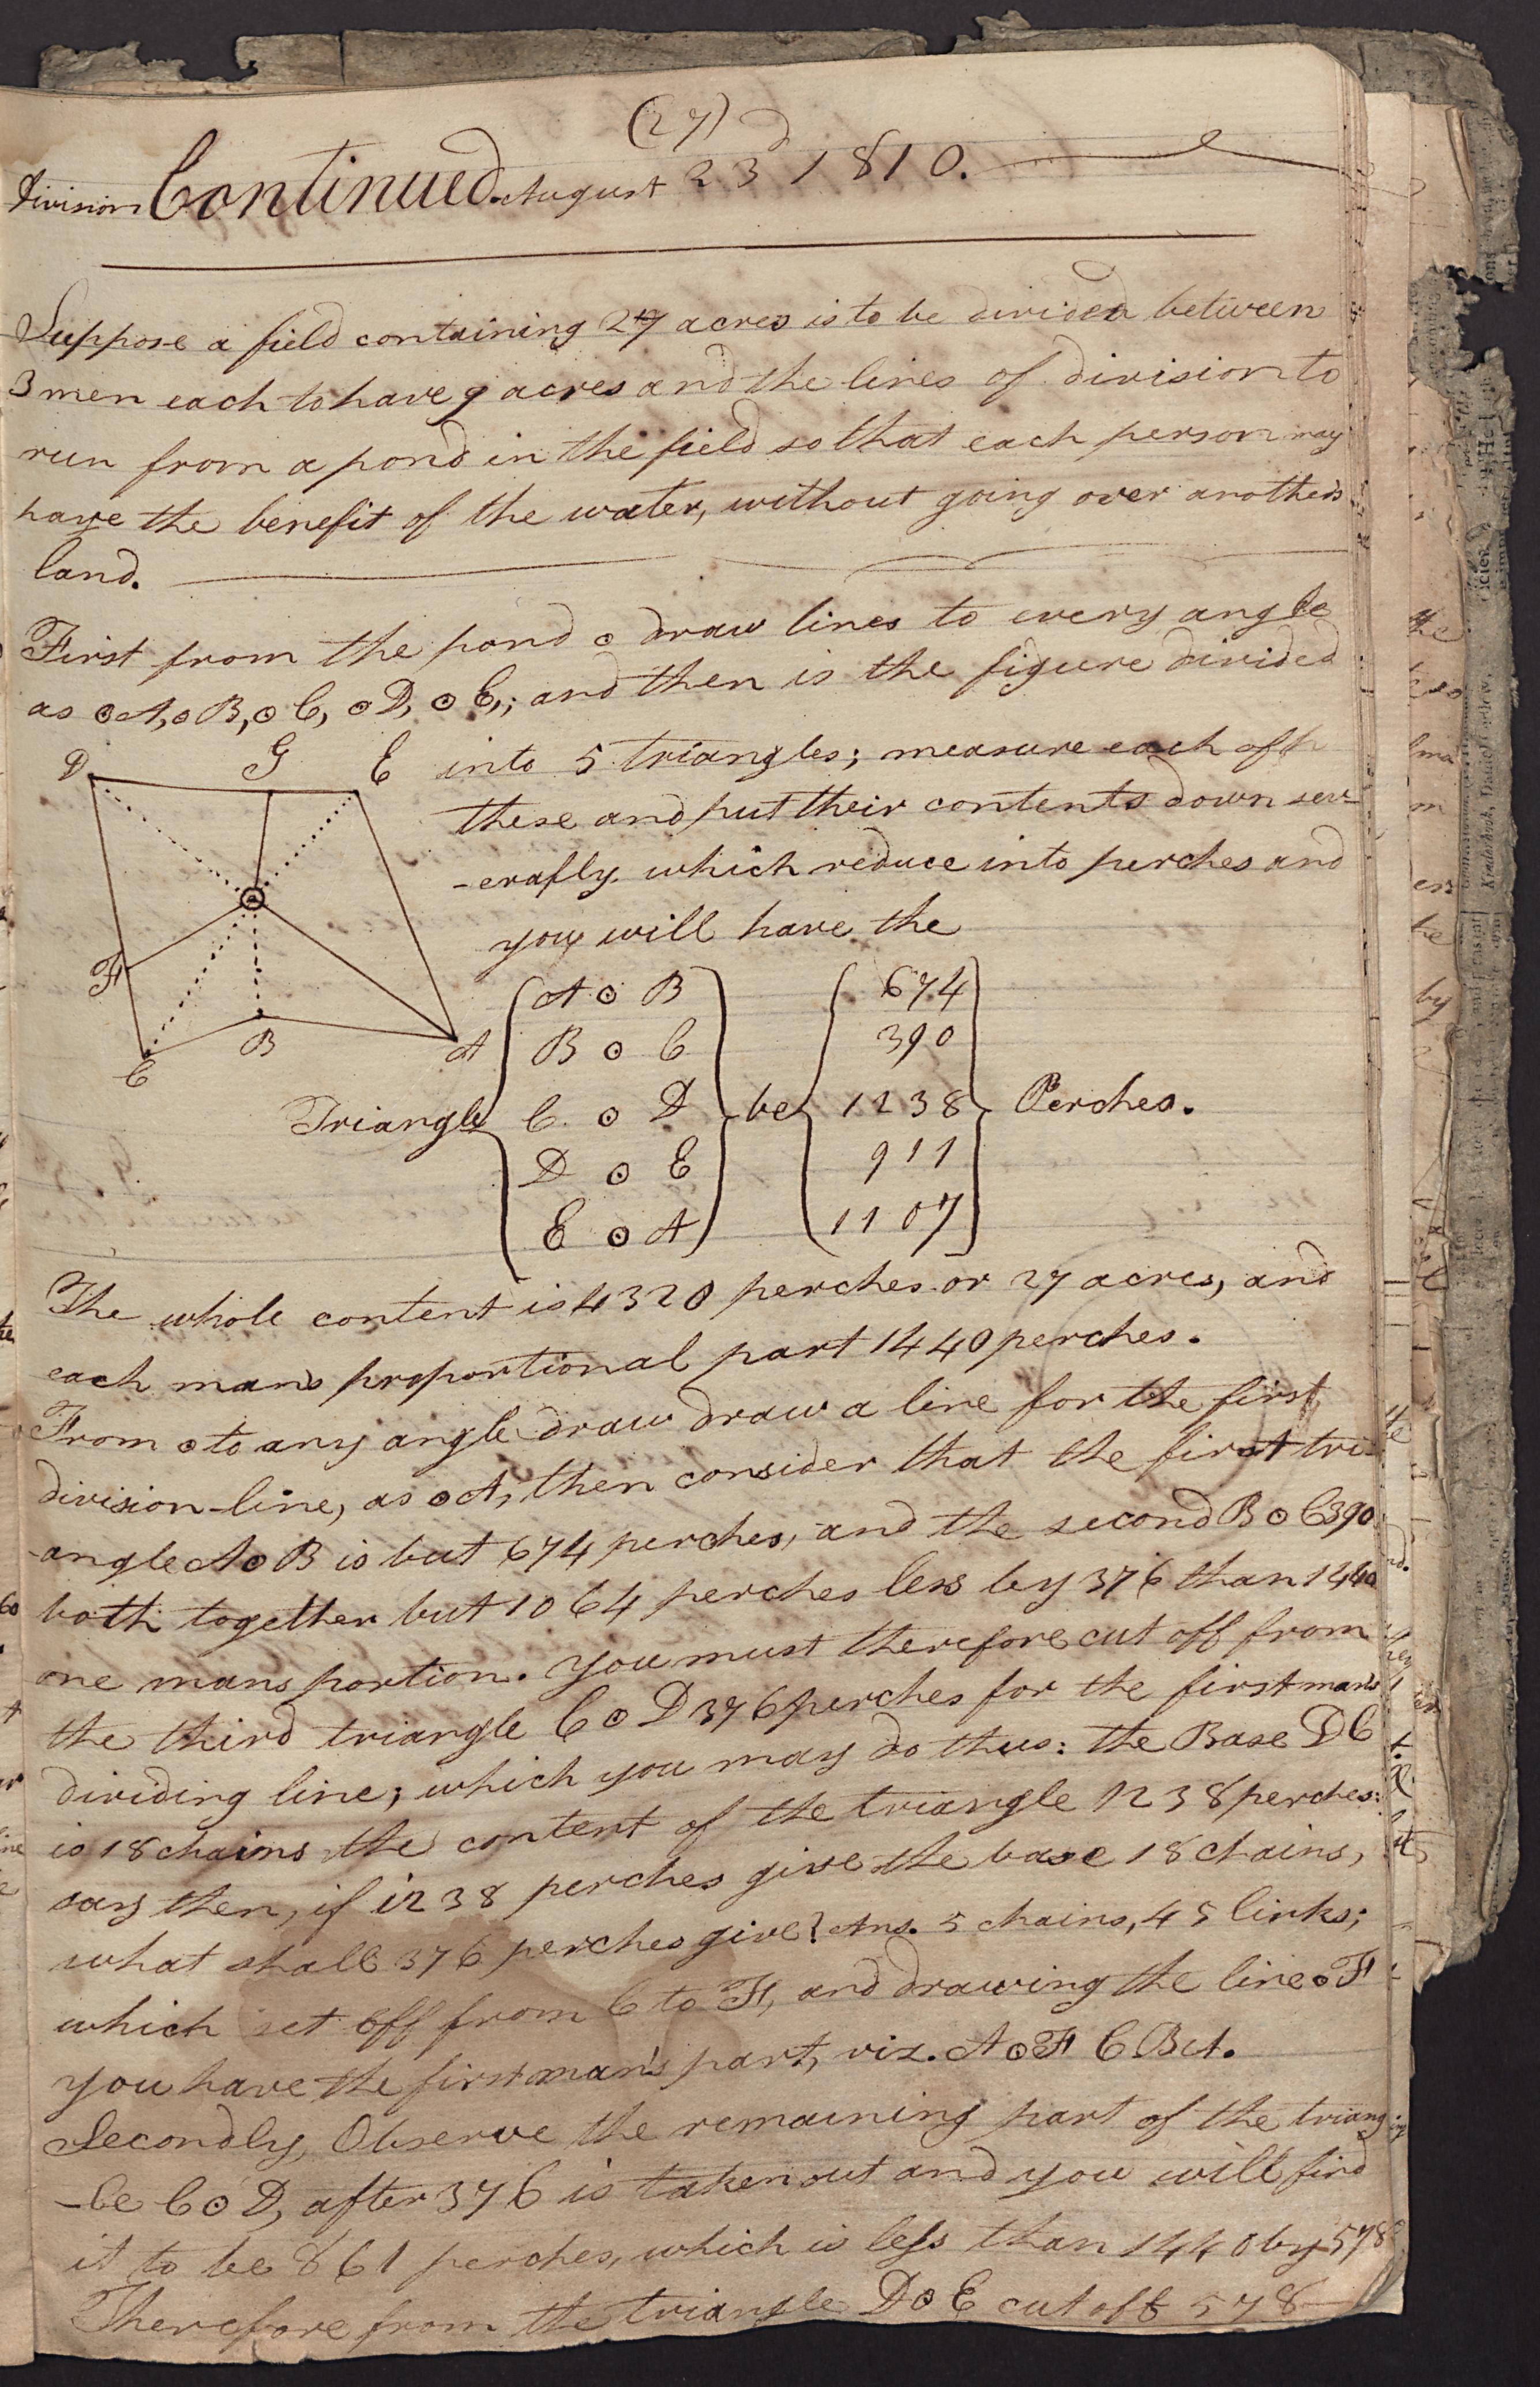 (27)
Division Continued. August 23d 1810.
Suppose a field containing 27 acres is to be divided between
3 men each to have 9 acres and the lines of division to
run from a pond in the field so that each person may
have the benefit of the water, without going over anothers
land.
First from the pond ⊙ draw lines to every angle
as ⊙A, ⊙B, ⊙C, ⊙D, ⊙E,; and then is the figure divided
D G E
into 5 triangles; measure each of
these and put their contents down sev-
-erally. which reduce into perches and
you will have the
F
C B A
A ⊙ B 674
B ⊙ C 390
Triangle C. ⊙ D be 1238 Perches.
D ⊙ E 911
E ⊙ A 1107
The whole content is 4320 perches or 27 acres, and
each mans proportional part 1440 perches.
From ⊙ to any angle draw draw a line for the first
division-line, as ⊙A, then consider that the first tri-
-angle A⊙B is but 674 perches, and the second B⊙C 390
both together but 1064 perches less by 376 than 1440
one mans portion. You must therefore cut off from
the third triangle C⊙D 376 perches for the first man's
dividing line; which you may do thus: the Base DC
is 18 chains the content of the triangle 1238 perches:
say then, if 1238 perches give the base 18 chains,
what shall 376 perches give? Ans. 5 chains, 45 links;
which set off from C to F, and drawing the line ⊙F
you have the first man's part, viz. A⊙F C B A.
Secondly, Observe the remaining part of the triang
-le C⊙D, after 376 is taken out and you will find
it to be 861 perches, which is less than 1440 by 578
Therefore from the triangle D⊙E cut off 578